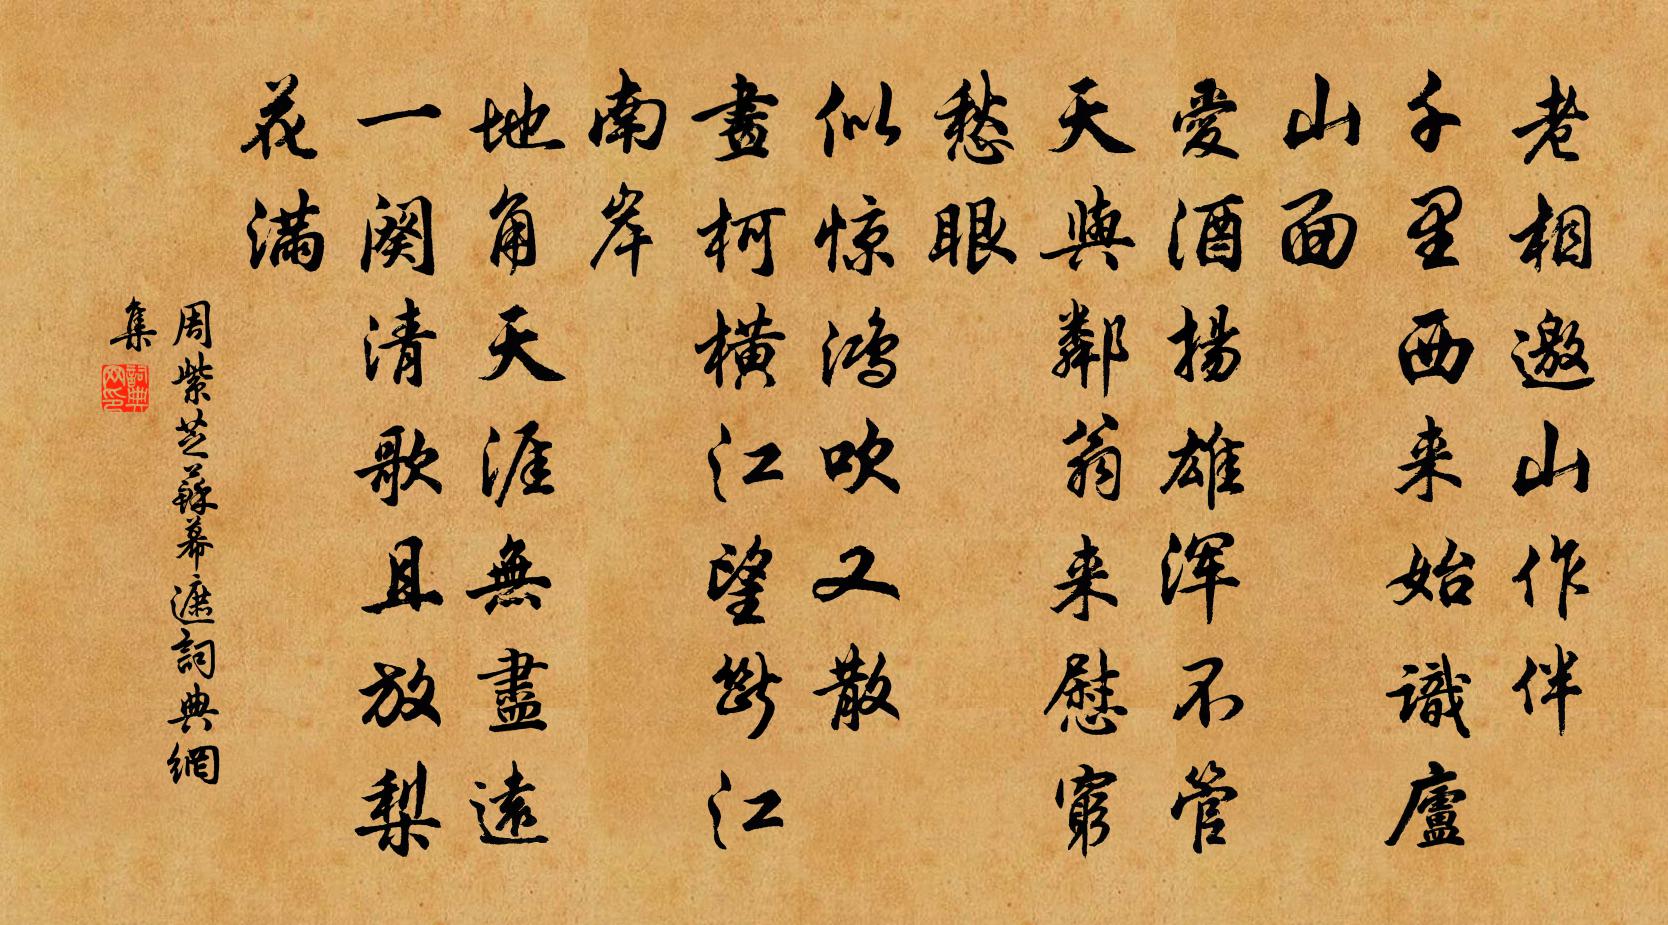 老相邀山作伴
千里西来始識廬
山面
愛酒揚雄浑不管
天與鄰翁来慰窮
愁眼
似惊鸿吹又散
畫柯橫江望斷江
南岸
地角天涯無盡遠
一阕清歌且放梨
花满
周紫芝蘇幕遮詞典網
集
詞典
网印